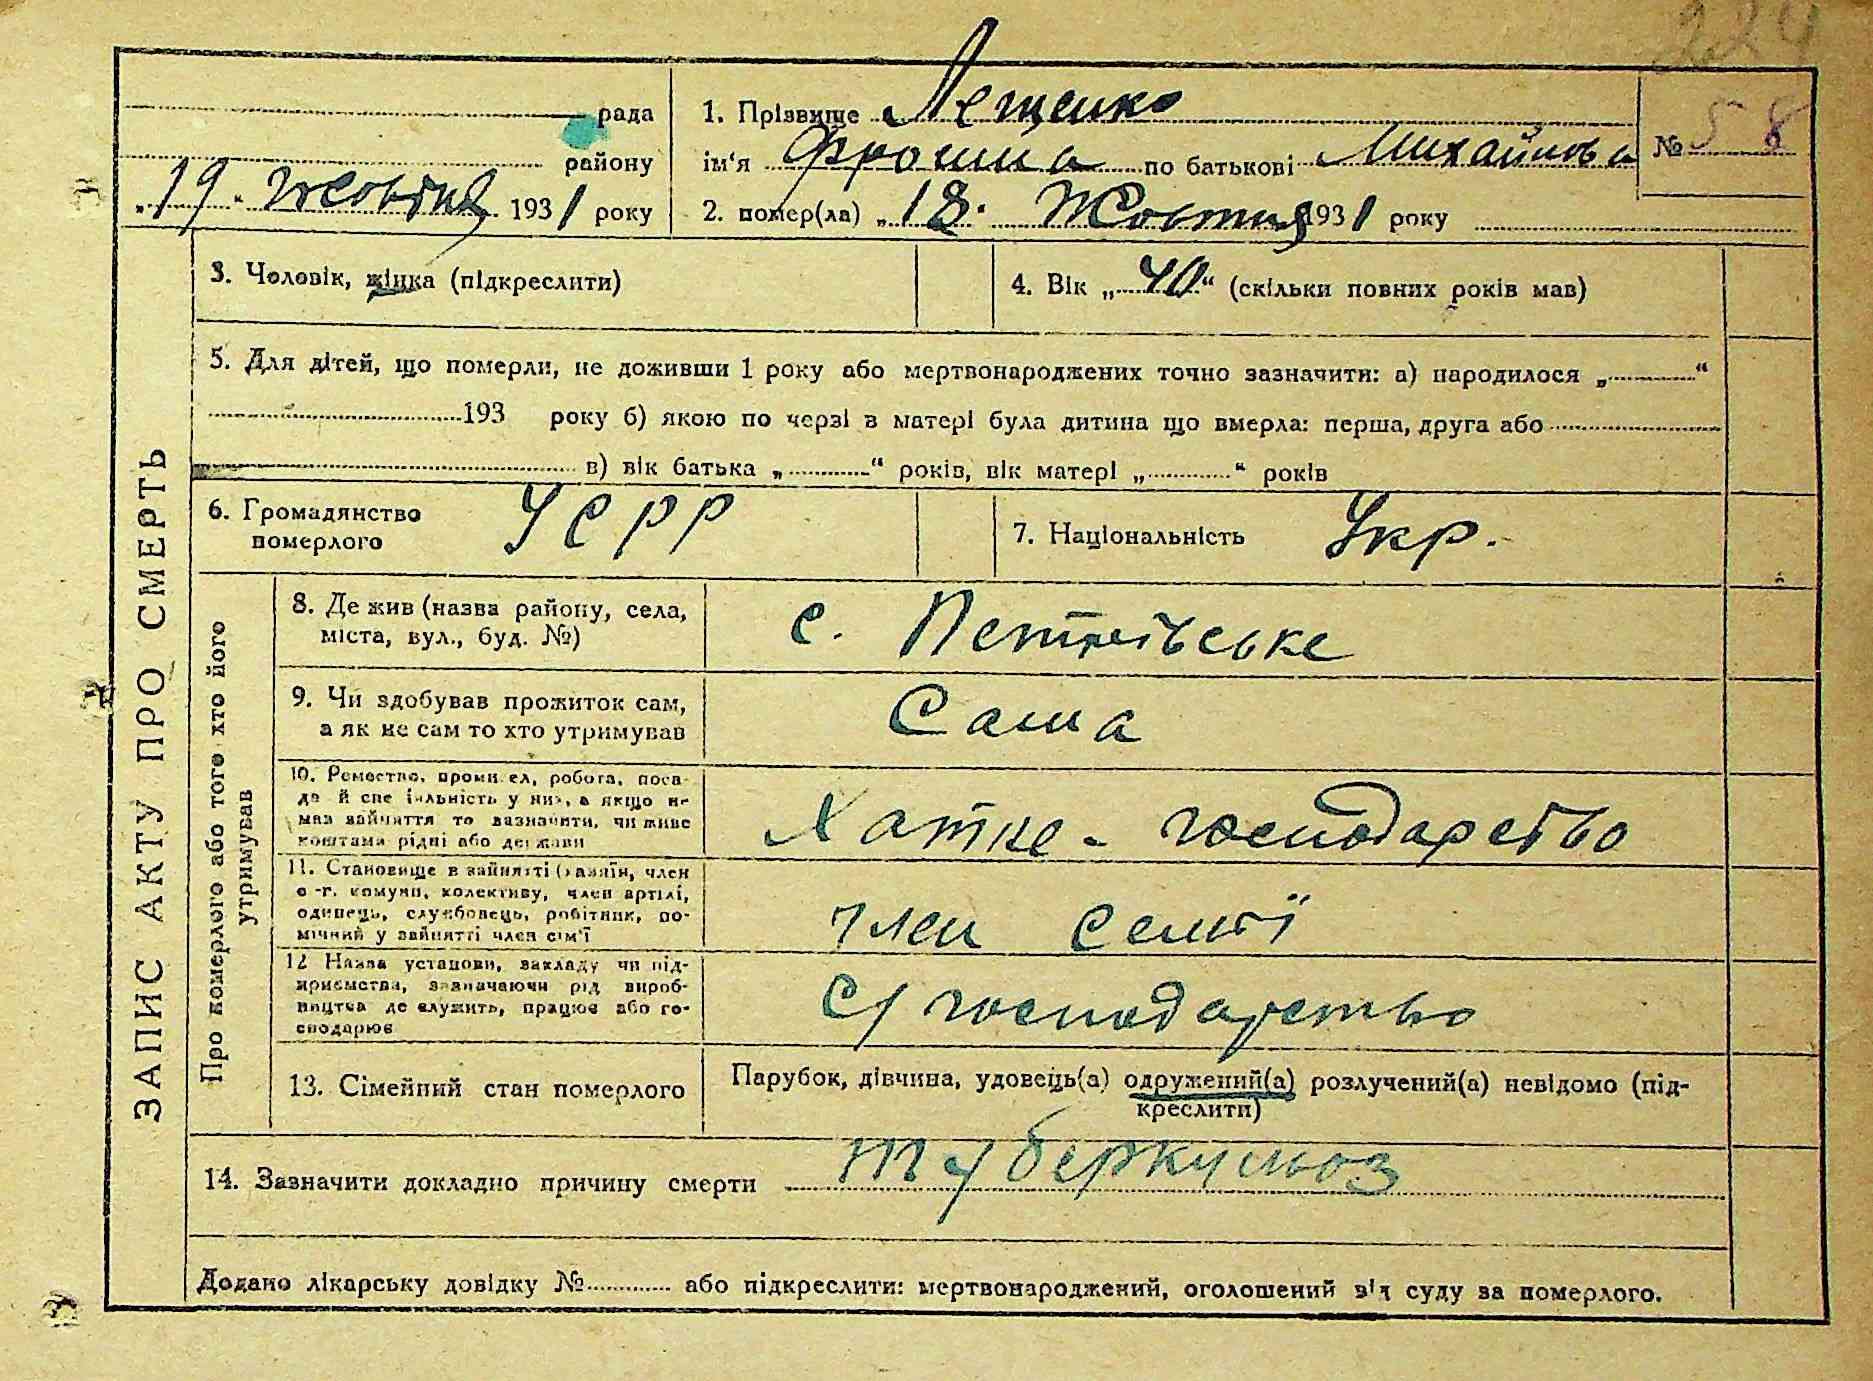 224
рада
району
„19“ Жовтня 1931 року
1. Прізвище Лещенко
ім'я Фросина по батькові Михайлова
2. помер(ла) „18“ Жовтня 1931 року
№ 58
ЗАПИС АКТУ ПРО СМЕРТЬ
3. Чоловік, жінка (підкреслити)
4. Вік „40“ (скільки повних років мав)
5. Для дітей, що померли, не доживши 1 року або мертвонароджених точно зазначити: а) народилося „ “
193 року б) якою по черзі в матері була дитина що вмерла: перша, друга або
в) вік батька „ “ років, вік матері „ “ років
6. Громадянство
померлого
УСРР
7. Національність Укр.
Про померлого або того хто його
утримував
8. Де жив (назва району, села,
міста, вул., буд. №)
с. Петрівське
9. Чи здобував прожиток сам,
а як не сам то хто утримував
Сама
10. Ремество, промисел, робота, поса-
да й спеціяльність у них, а якщо не
мав зайняття то зазначити, чи живе
коштами рідні або держави
Хатне - господарство
11. Становище в зайнятті (хазяїн, член
с.-г. комуни, колективу, член артілі,
одинець, службовець, робітник, по-
мічний у зайнятті член сім'ї
член семії
12 Назва установи, закладу чи під-
приємства, зазначаючи рід вироб-
ництва де служить, працює або го-
сподарює
С/господарство
13. Сімейний стан померлого
Парубок, дівчина, удовець(а) одружений(а) розлучений(а) невідомо (під-
креслити)
14. Зазначити докладно причину смерти туберкульоз
Додано лікарську довідку № або підкреслити: мертвонароджений, оголошений від суду за померлого.